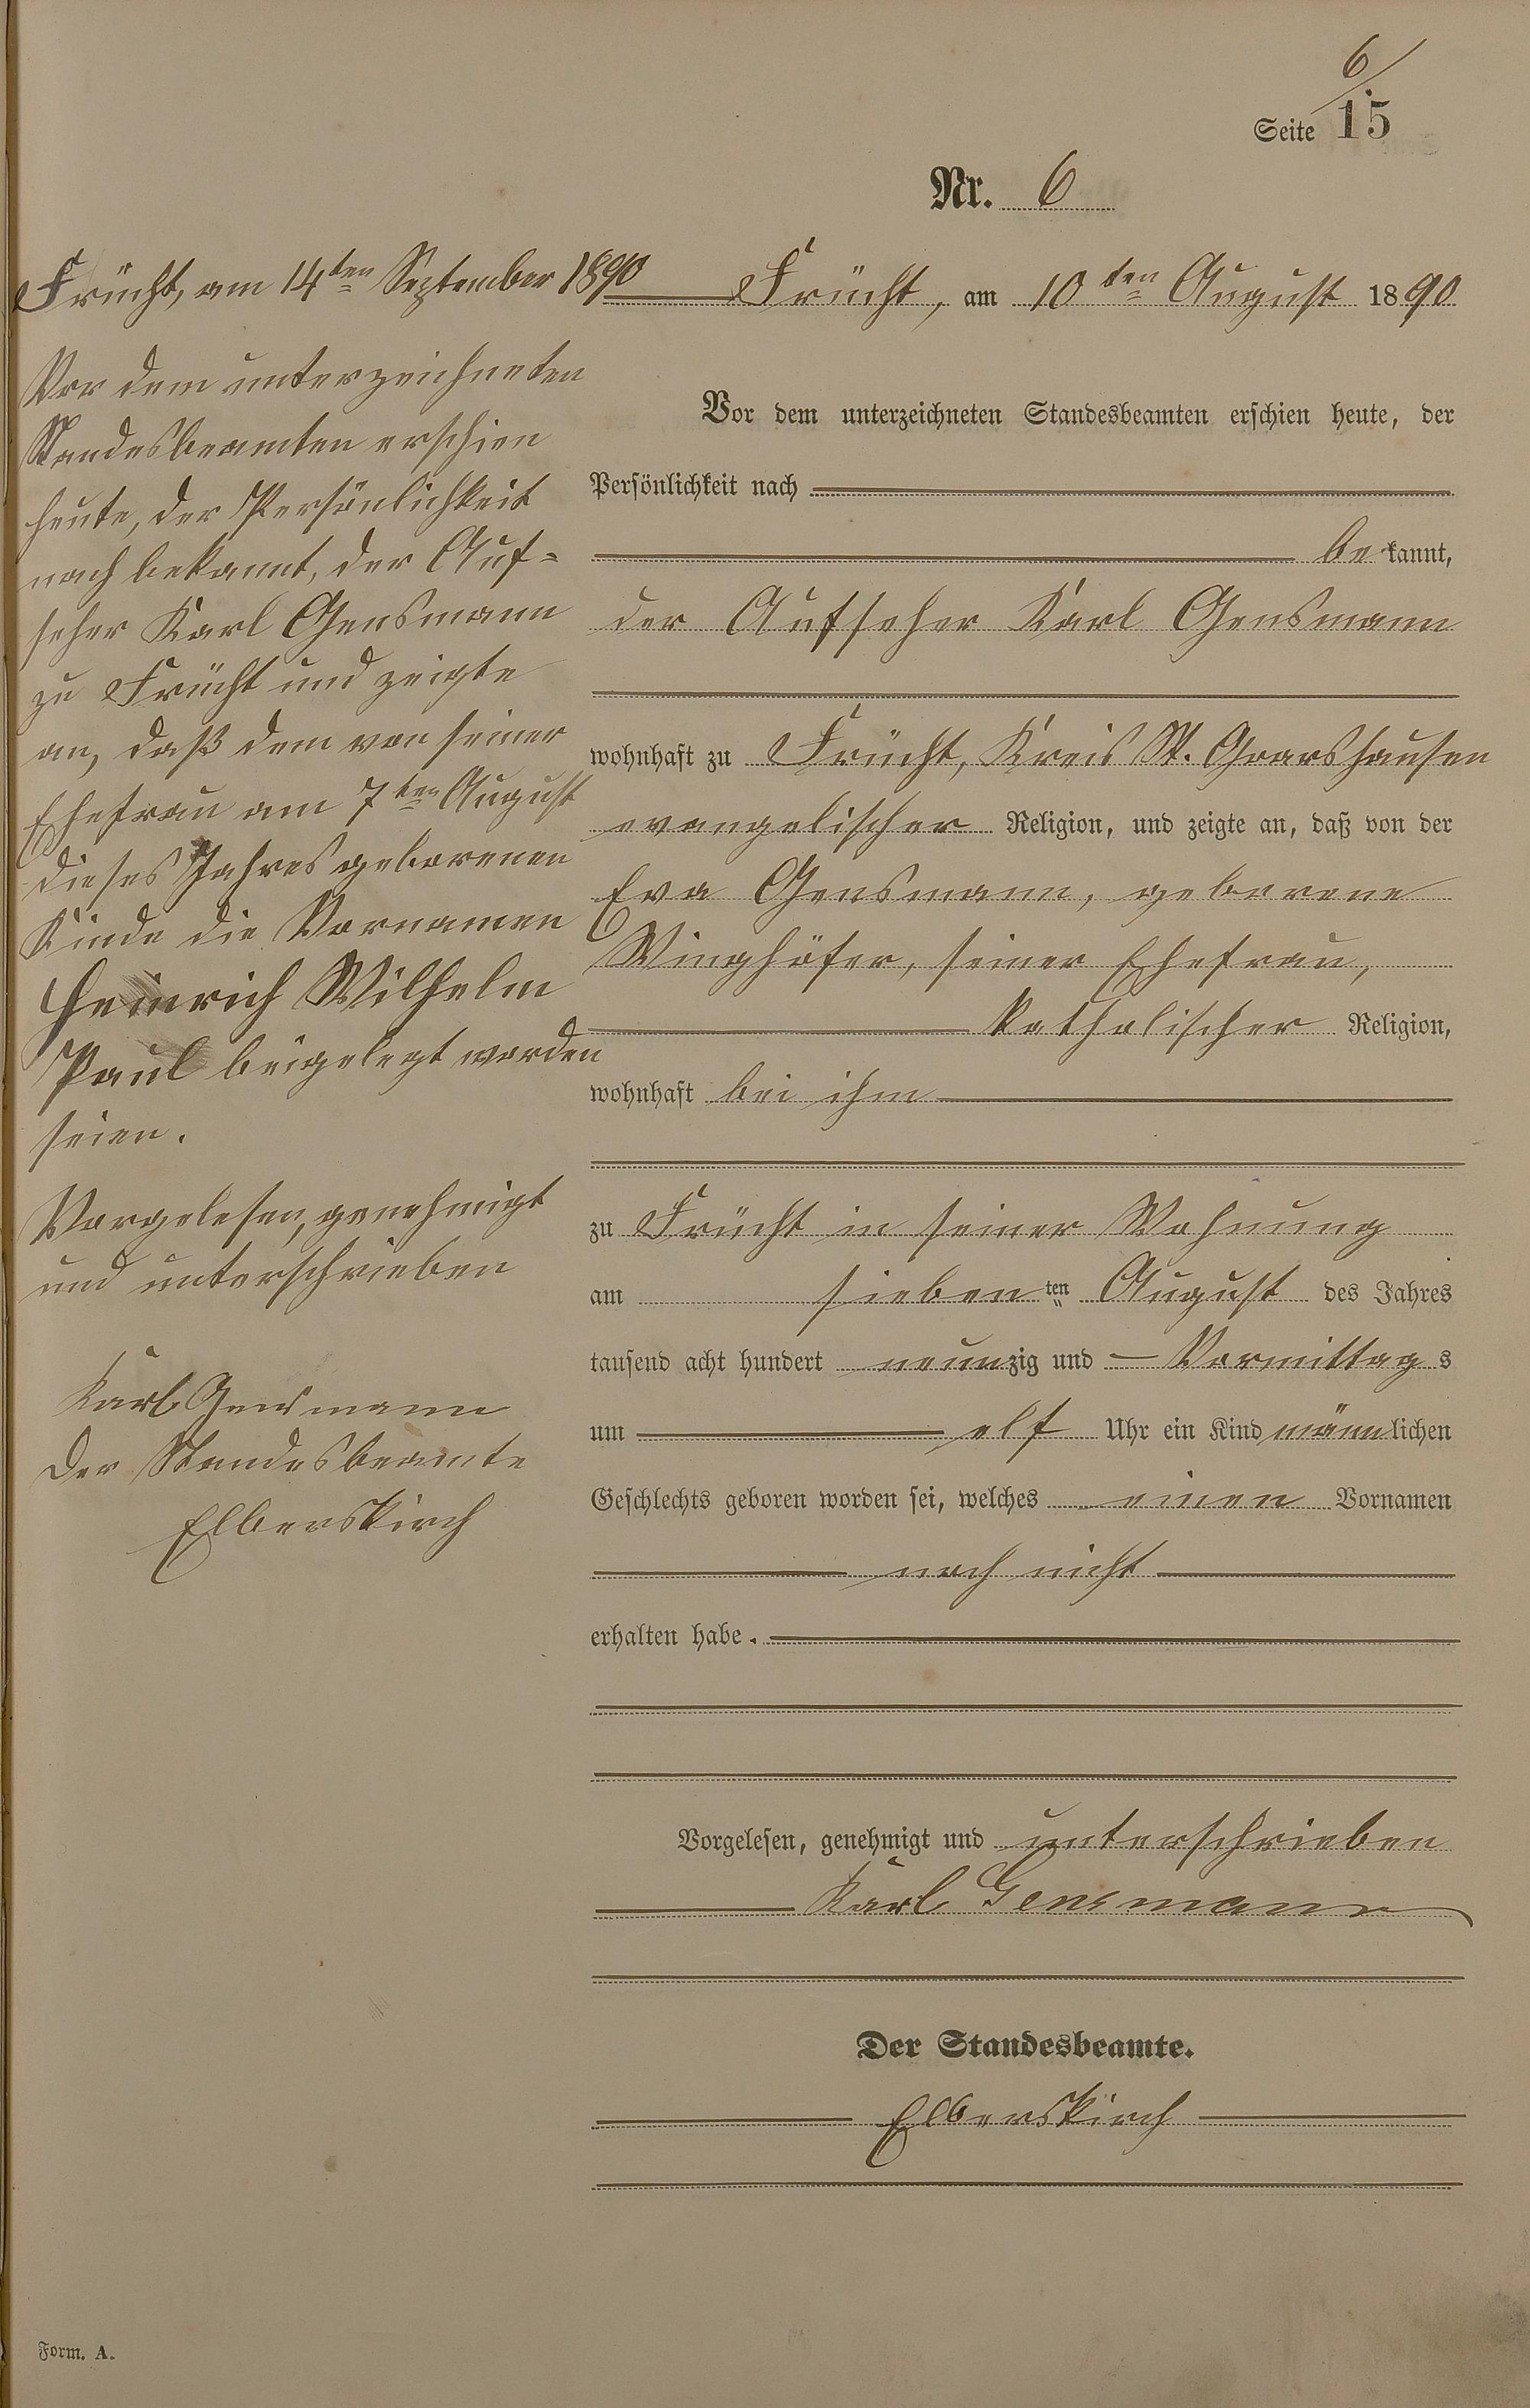 6/
Seite 15
Nr. 6
Frücht, am 14ten September 1890
Vor dem unterzeichneten
Standesbeamten erschien
heute, der Persönlichkeit
nach bekannt, der Auf-
seher Karl Gensmann
zu Frücht und zeigte
an, daß dem von seiner
Ehefrau am 7ten August
dieses Jahres geborenen
Kinde die Vornamen
Heinrich Wilhelm
Paul beigelegt worden
seien.
Vorgelesen, genehmigt
und unterschrieben
Karl Gensmann
Der Standesbeamte
Elberskirch
Frücht, am 10ten August 1890
Vor dem unterzeichneten Standesbeamten erschien heute, der
Persönlichkeit nach
bekannt,
der Aufseher Karl Gensmann
wohnhaft zu Frücht, Kreis St. Goarshausen
evangelischer Religion, und zeigte an, daß von der
Eva Gensmann, geborene
Winghöfer, seiner Ehefrau,
katholischer Religion,
wohnhaft bei ihm
zu Frücht in seiner Wohnung
am siebenten August des Jahres
tausend acht hundert neunzig und — Vormittags
um elf Uhr ein Kind männlichen
Geschlechts geboren worden sei, welches einen Vornamen
noch nicht
erhalten habe.
Vorgelesen, genehmigt und unterschrieben
Karl Gensmann
Der Standesbeamte.
Elberskirch
Form. A.